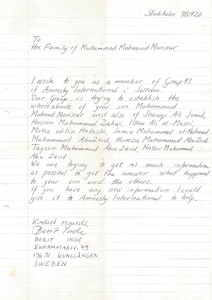 Stockholm 980920
To
the Family of Muhammad Mahmoud Mansour
I write to you as a member of Group 93
of Amnesty International in Sweden.
Our Group is trying to establish the
whereabouts of your son Muhammad
Mahmoud Mansour and also of Shawqi Ali Jamal,
Hassan Muhammad Ali al-
Muhammad Abu Zeid, Hamza Muhammad Abu Zeid
Tayssir Muhammad Abu Zeid, Nasser Muhammad
Abu Zeid.
We are trying to get as much information
as possible to get the answer what happened
to your son and the others.
If you have any new information I could
give it to Amnesty International to help.
Kindest regards,
BERIT
196 31 KUNGSÄNGEN
SWEDEN